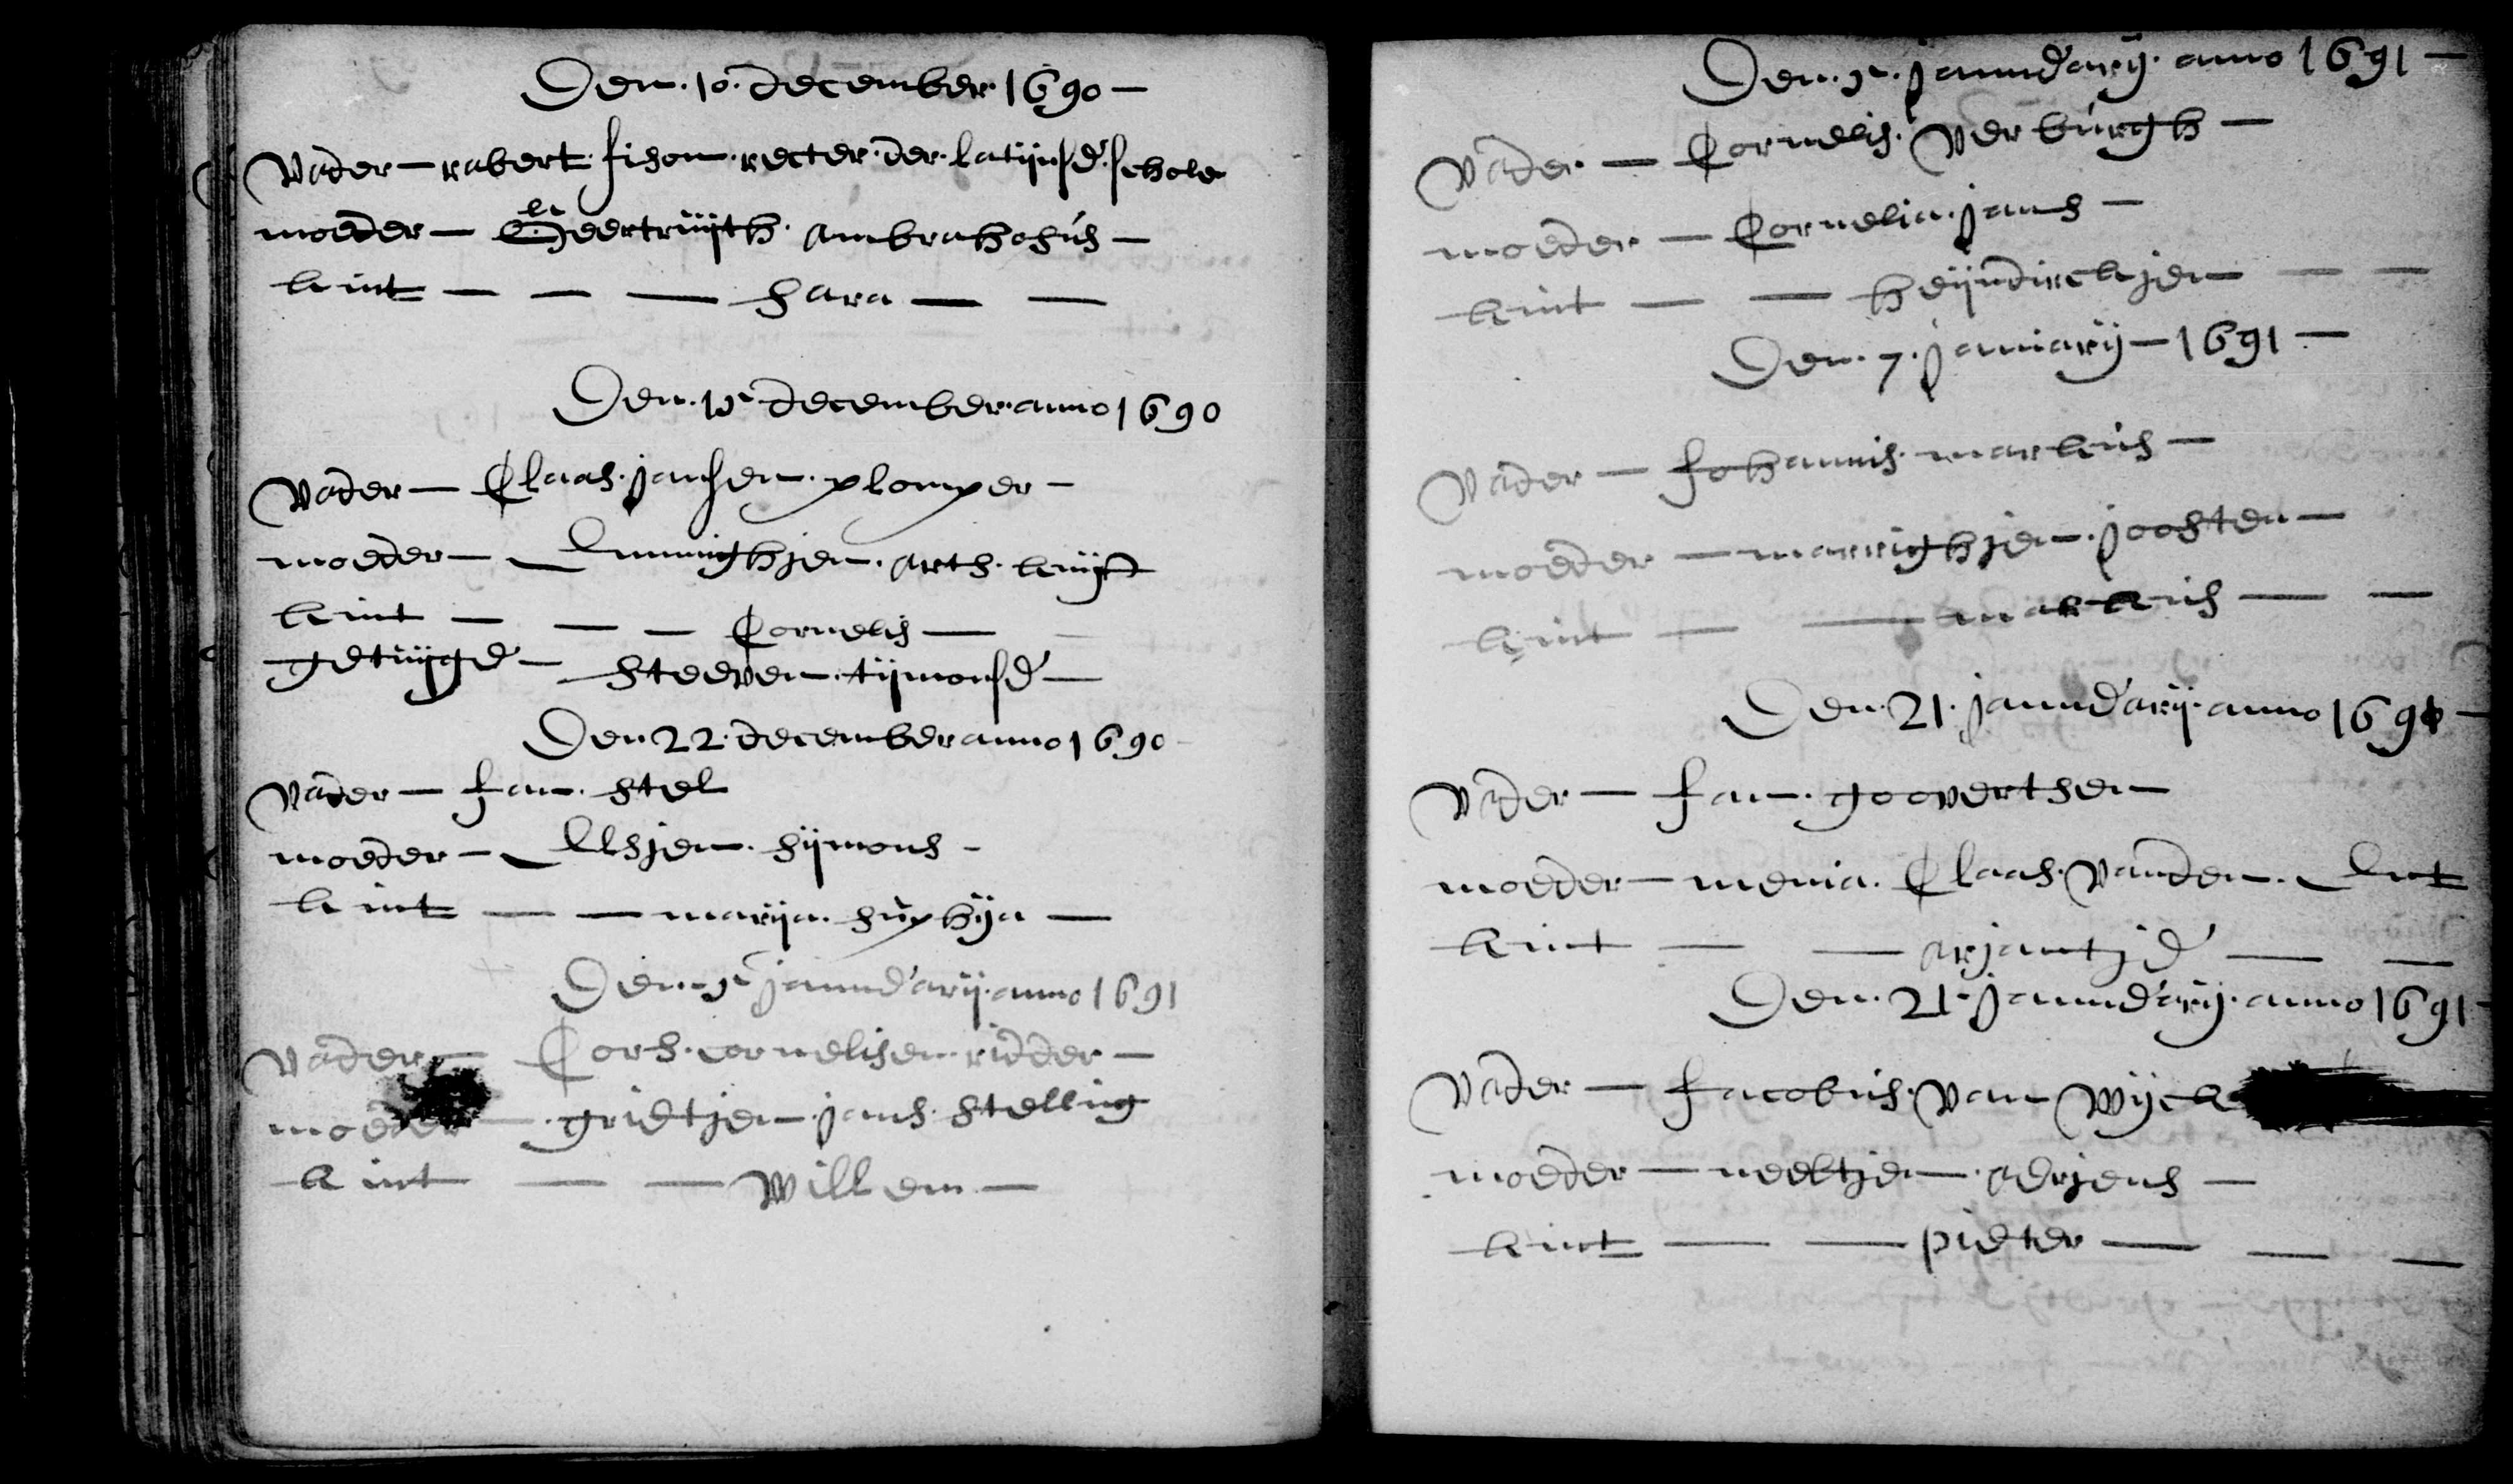 Den. 10. December. 1690 —
Vader — rabert. fison. recter. der. latijnse. schole
moeder — Geertruijth. Ambrahosus —
kint — — — Sara — —
Den. december. anno 1690
Vader — Claas. jansen. plomper —
moeder — Emmighjen. Arts. kuijst
kint — — — Cornelis —
getuijge — Steeven. tijmonse —
Den. 22. december anno 1690
Vader — Jan. Stel
moeder — Elsjen. Sijmons —
kint — — marija. suphija —
Den. januewarij. anno 1691
Vader — Cors. cornelisen. ridder —
moeder — grietjen. jans. Stelling
kint — — Willem —
Den. januewarij. anno 1691 —
Vader — Cornelis. Verburgh —
moeder — Cornelia. jans —
kint — — heijndirckjen — —
Den. 7. januarij — 1691 —
Vader — Johannis. markus —
moeder — marrighjen. joosten —
kint — — markus — —
Den. 21. januewarij. anno 1691 —
Vader — Jan. gooverthsen
moeder — Claas. Vanden. Ent
kint — — Arjantje — —
Den. 21. januewarij. anno 1691 —
Vader — Jacobus. Van Wijck
moeder — neeltjen. Aerjens —
kint — — pieter — — —